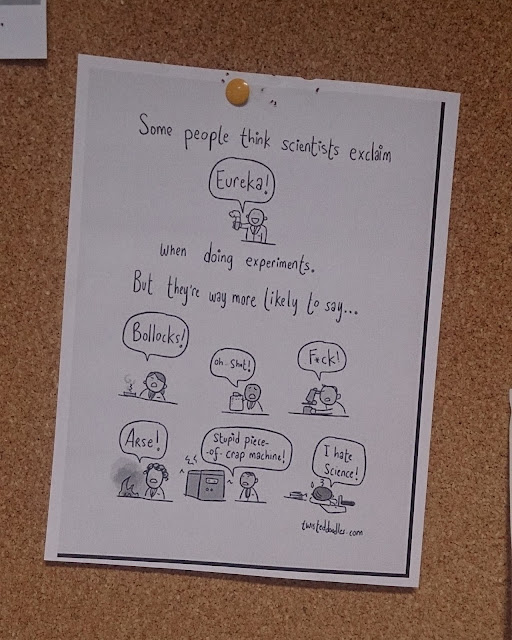 Some people think scientists exclaim
Eureka!
when doing experiments.
But they're way more likely to say...
Bollocks!
oh sh*t!
F*ck!
Arse!
Stupid piece-
-of-crap machine!
I hate
Science!
twisteddoodles.com